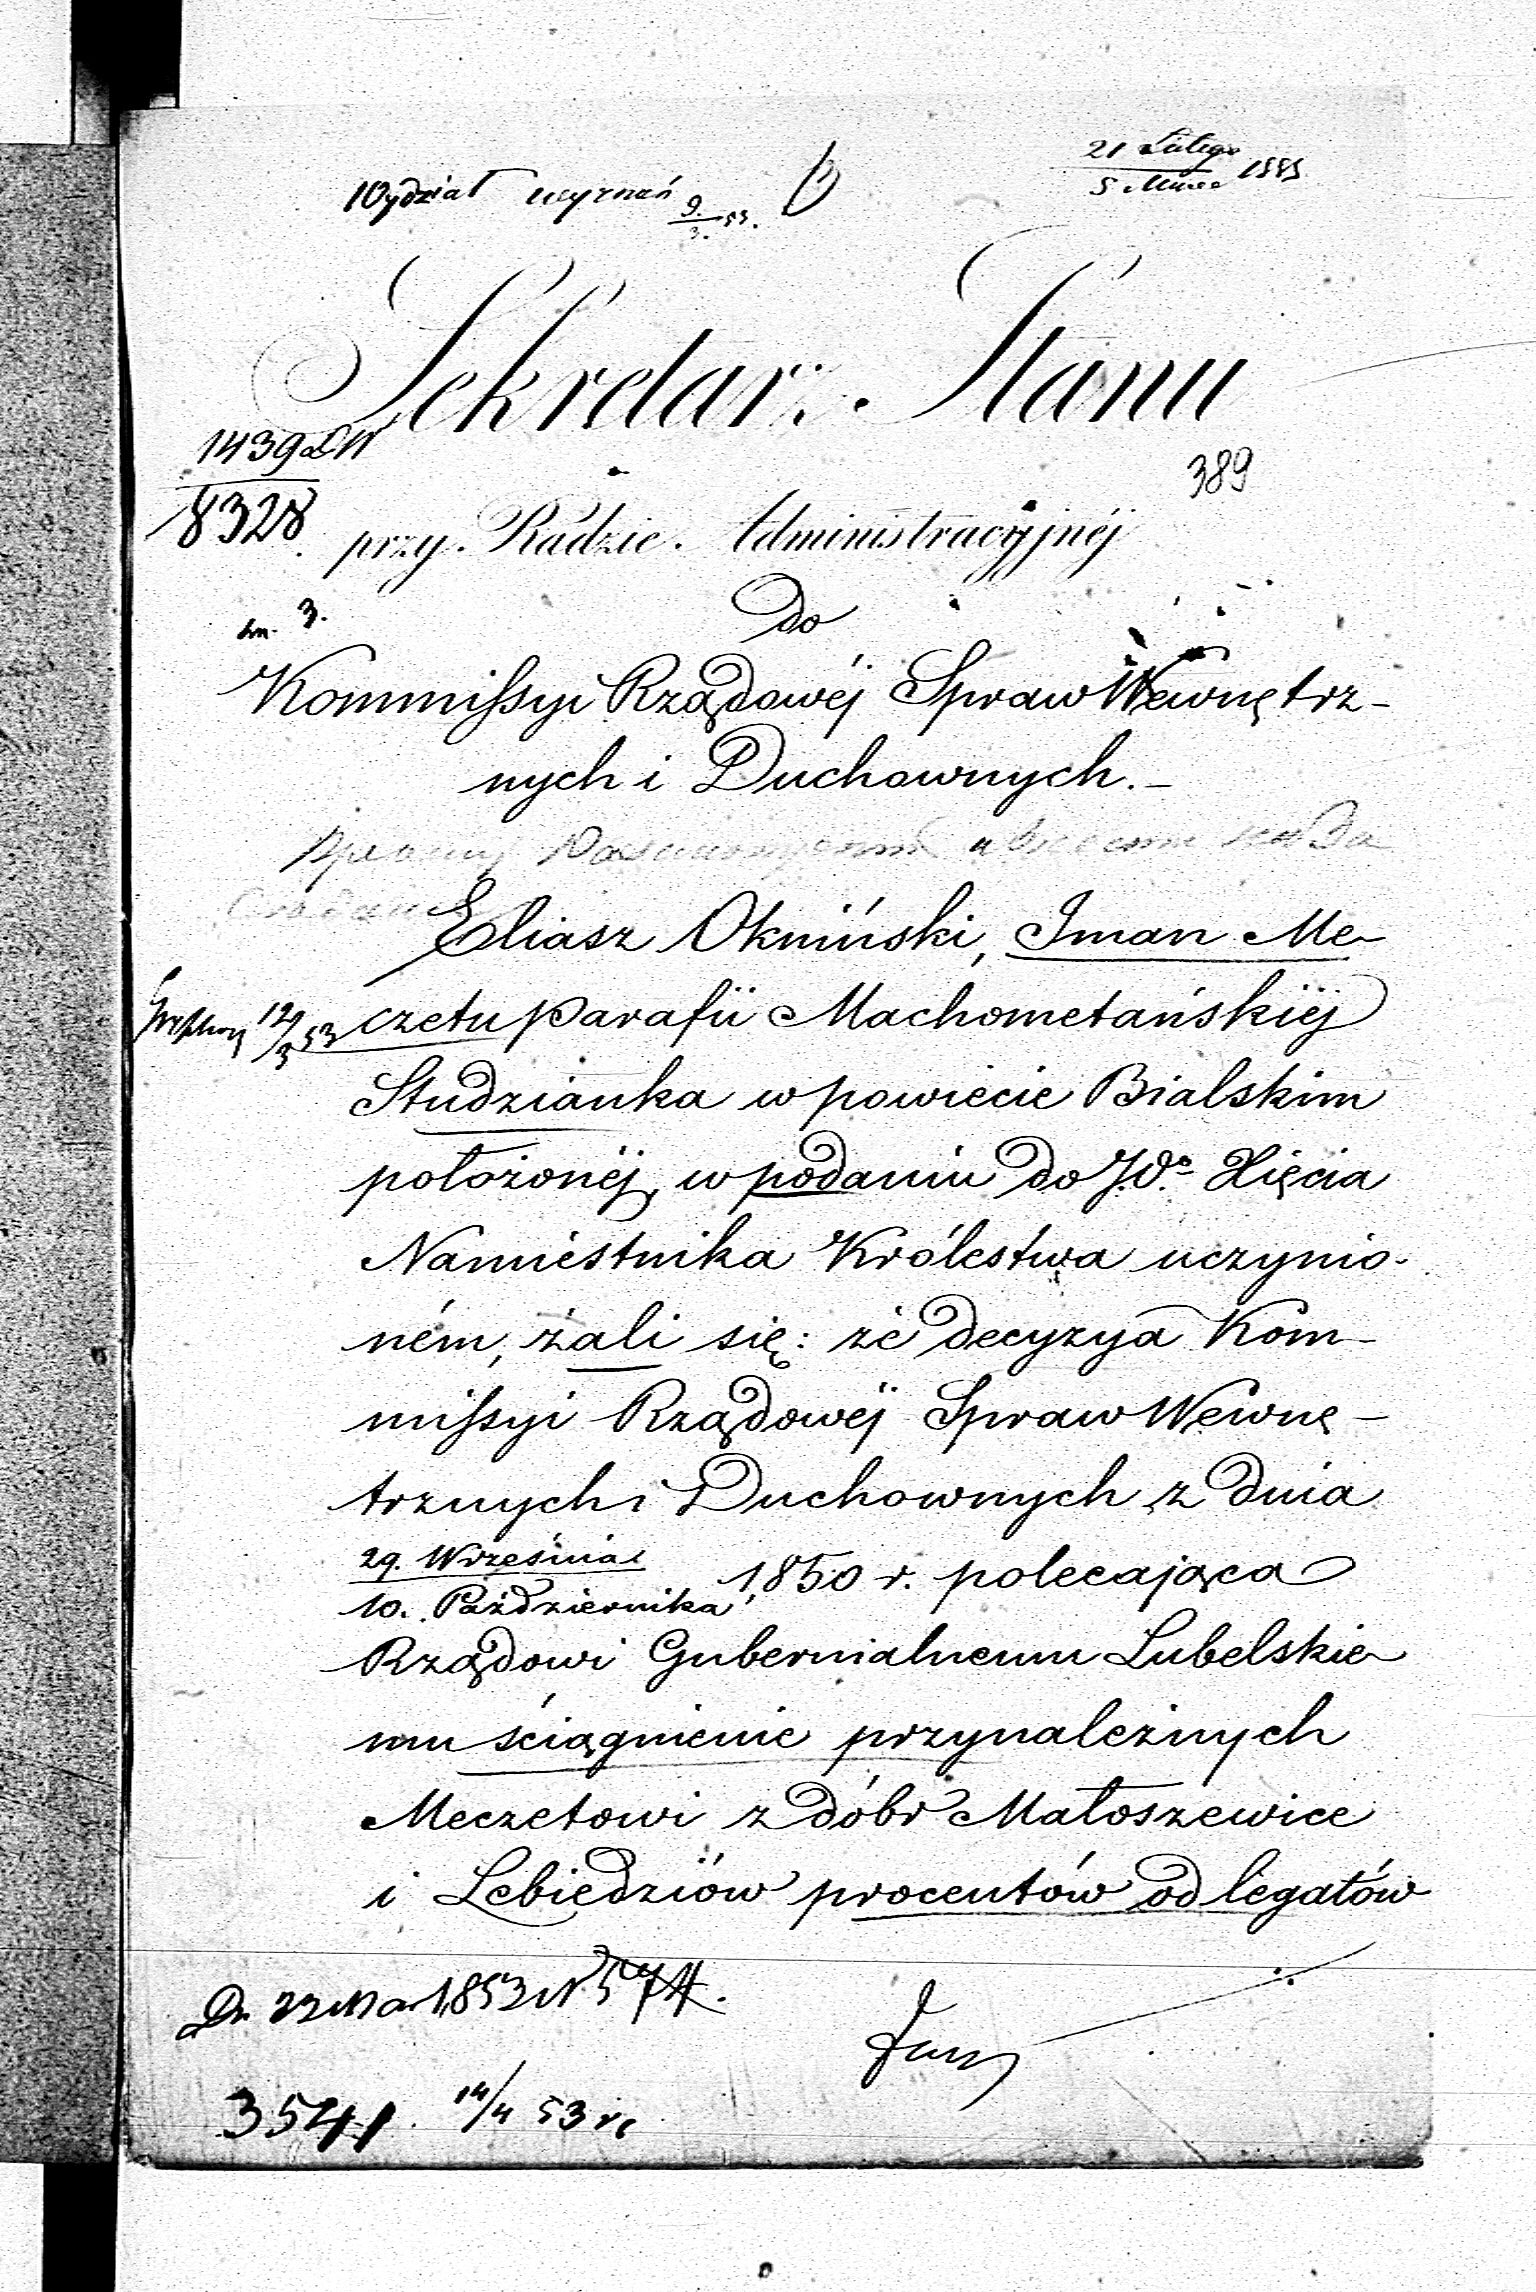 21 Lutego
5 Marca 1853
Wydział wyznań 9/3. 53.
Sekretarz Stanu
1439
8328
389
przy Radzie Administracyjnéj
do
Kommissyi Rządowéj Spraw Wewnętrz-
nych i Duchownych.-
Eliasz Okmiński, Iman Me-
12/3 53
czetu parafii Machometańskiéj
Studzianka w powiecie Bialskim
położonéj, w podaniu do JOº Xięcia
Namiestnika Królestwa uczynio-
ném, żali się: że decyzya Kom-
missyi Rządowéj Spraw Wewnę-
trznych i Duchownych z dnia
29. Września
10. Października 1850 r. polecająca
Rządowi Gubernialnemu Lubelskie-
mu ściągnienie przynależnych
Meczetowi z dóbr Małoszewice
i Lebiedziów procentów od legatów
Dn 22 Mar 1853 N 574.
3541. 14/4 53 r.